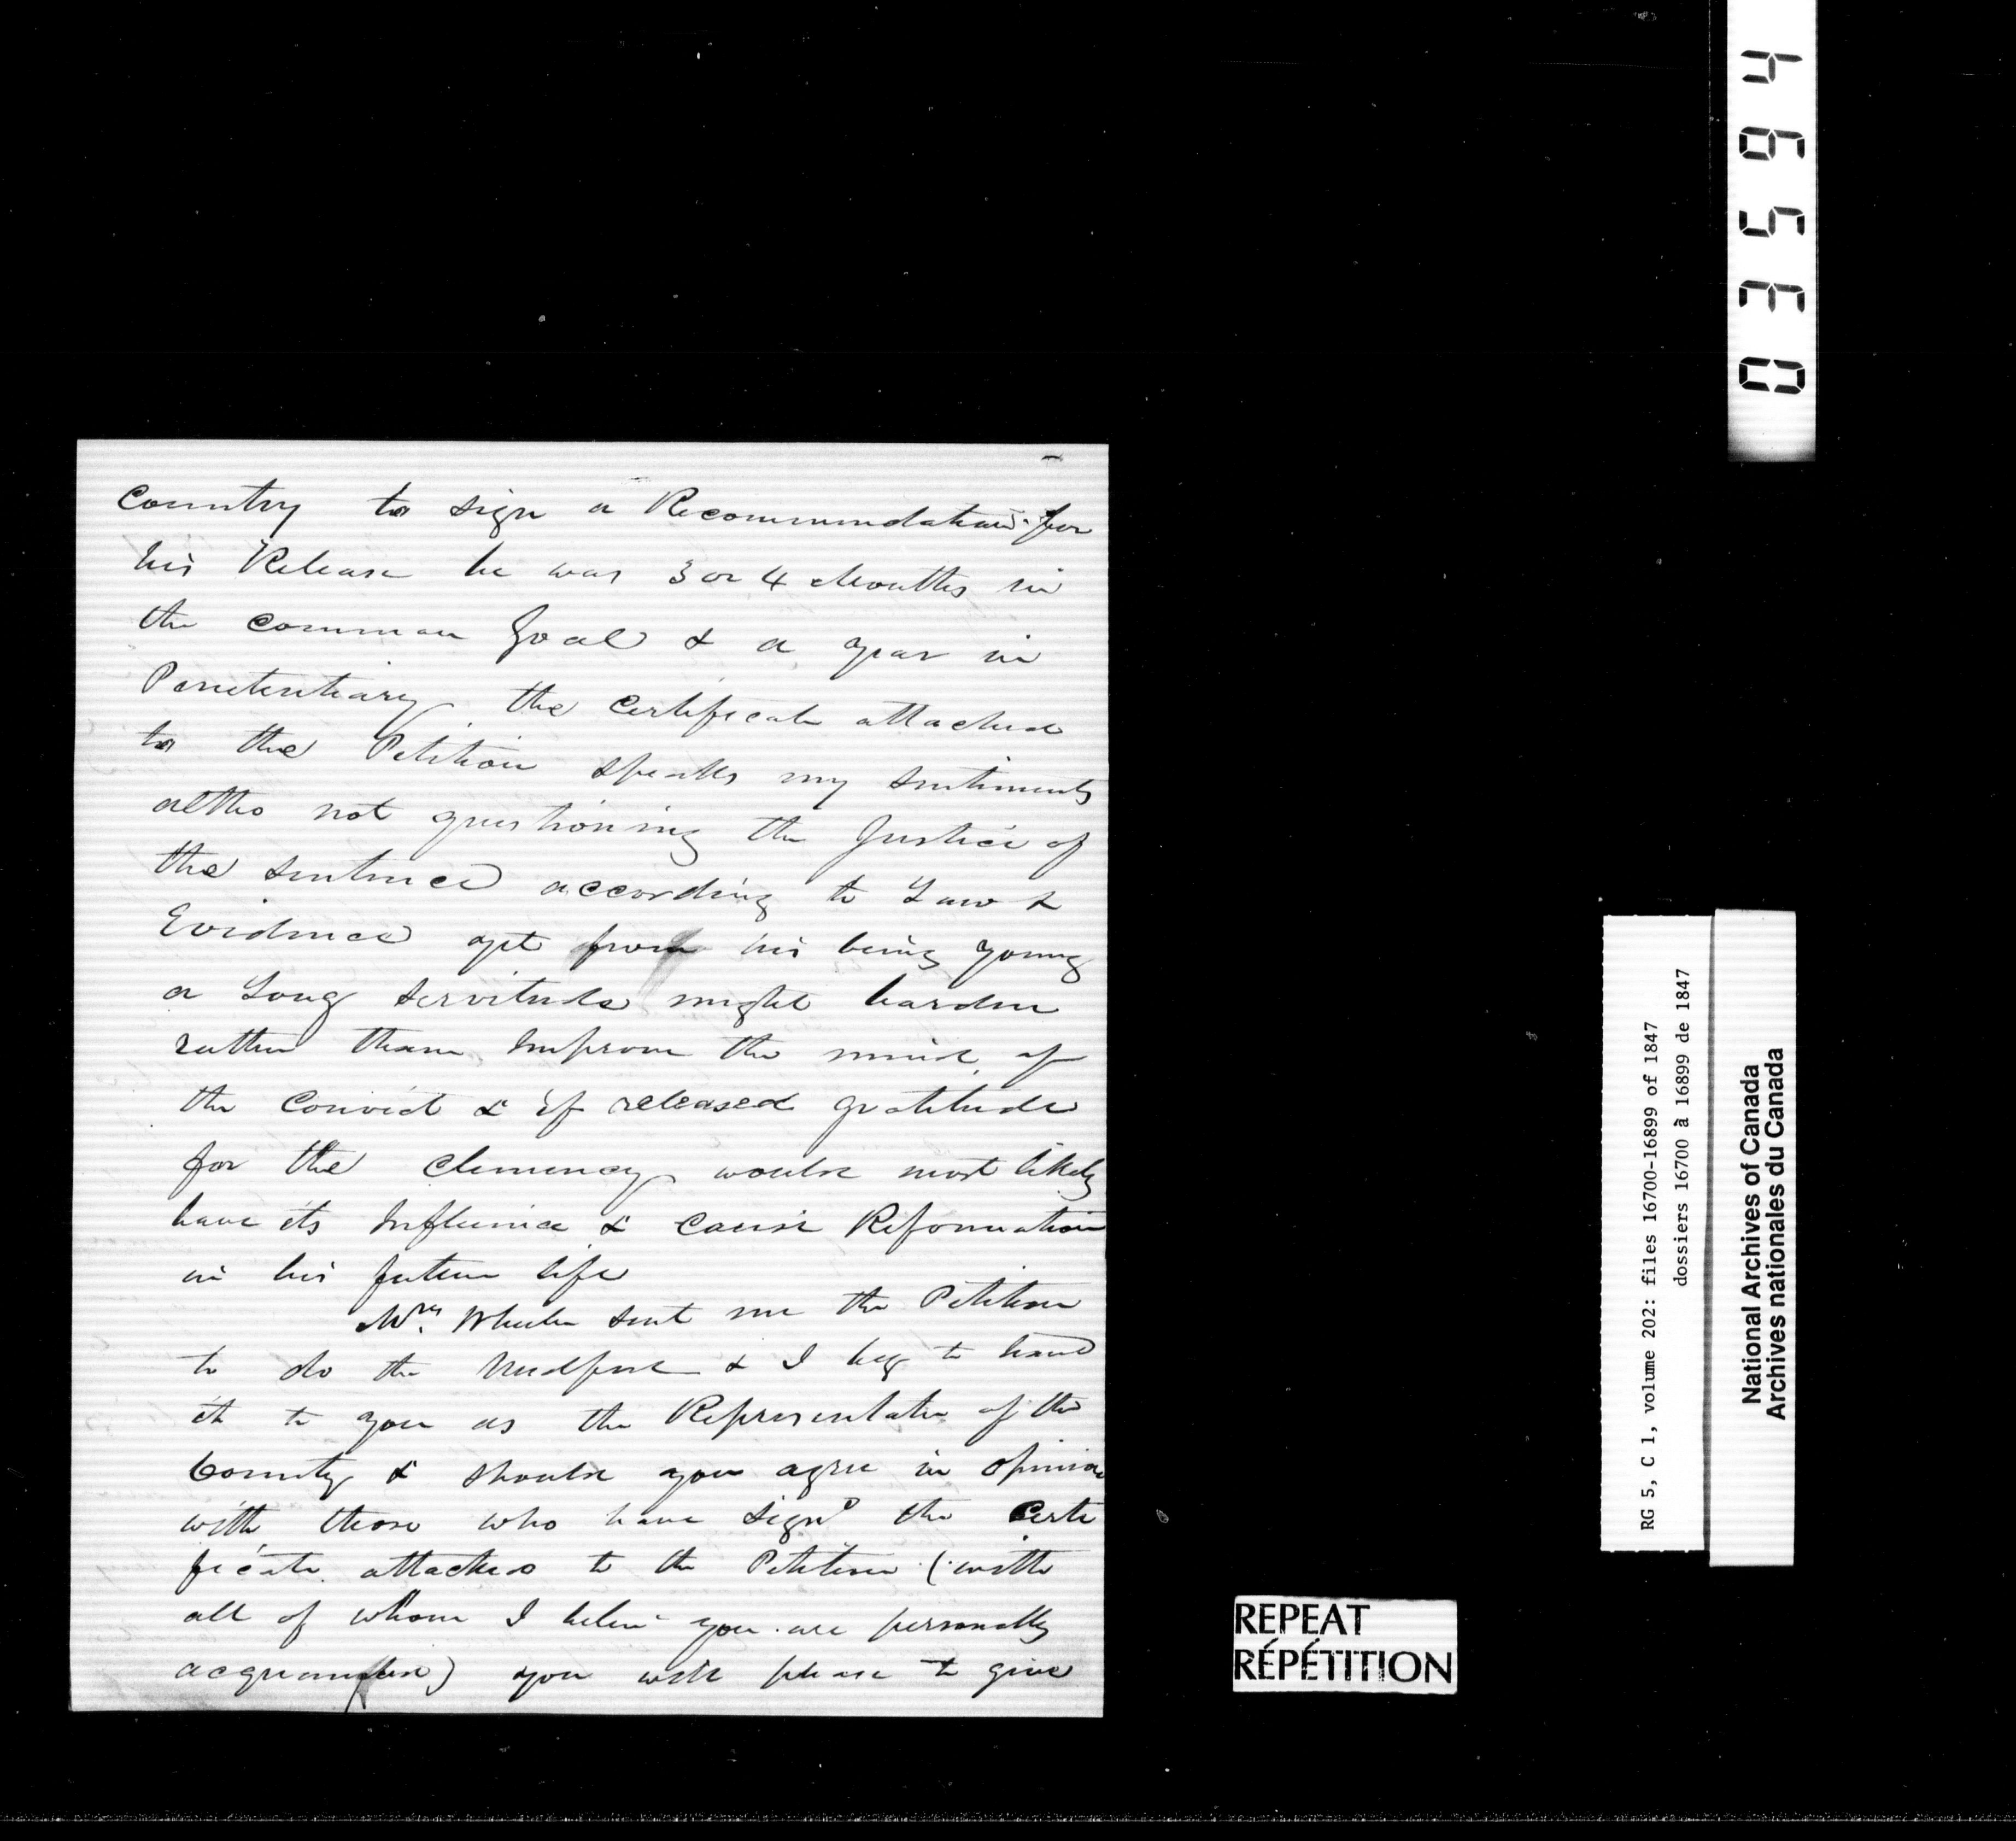 country to sign a Recommendation for
his Release he was 3 or 4 Months in
the common Goal & a year in
Penetentiary the Certificate attached
to the Petition speaks my sentiments
altho not questioning the Justice of
the sentence according to Law &
Evidence yet from his being young
a Long servitude might harden
rather than Improve the mind of
the Convict & if released gratitude
for the Clemency would most likely
have its Influence & cause Reformation
in his future life
Mrs. Wheeler sent me the Petition
to do the needful & I beg to hand
it to you as the Representative of the
County & should you agree in opinion
with those who have signd the Certi
ficate attached to the Petition (with
all of whom I believe you are personally
acquainted) you will please to give
03594
RG 5, C 1, volume 202: files 16700-16899 of 1847
dossiers 16700 à 16899 de 1847
National Archives of Canada
Archives nationales du Canada
REPEAT
RÉPÉTITION